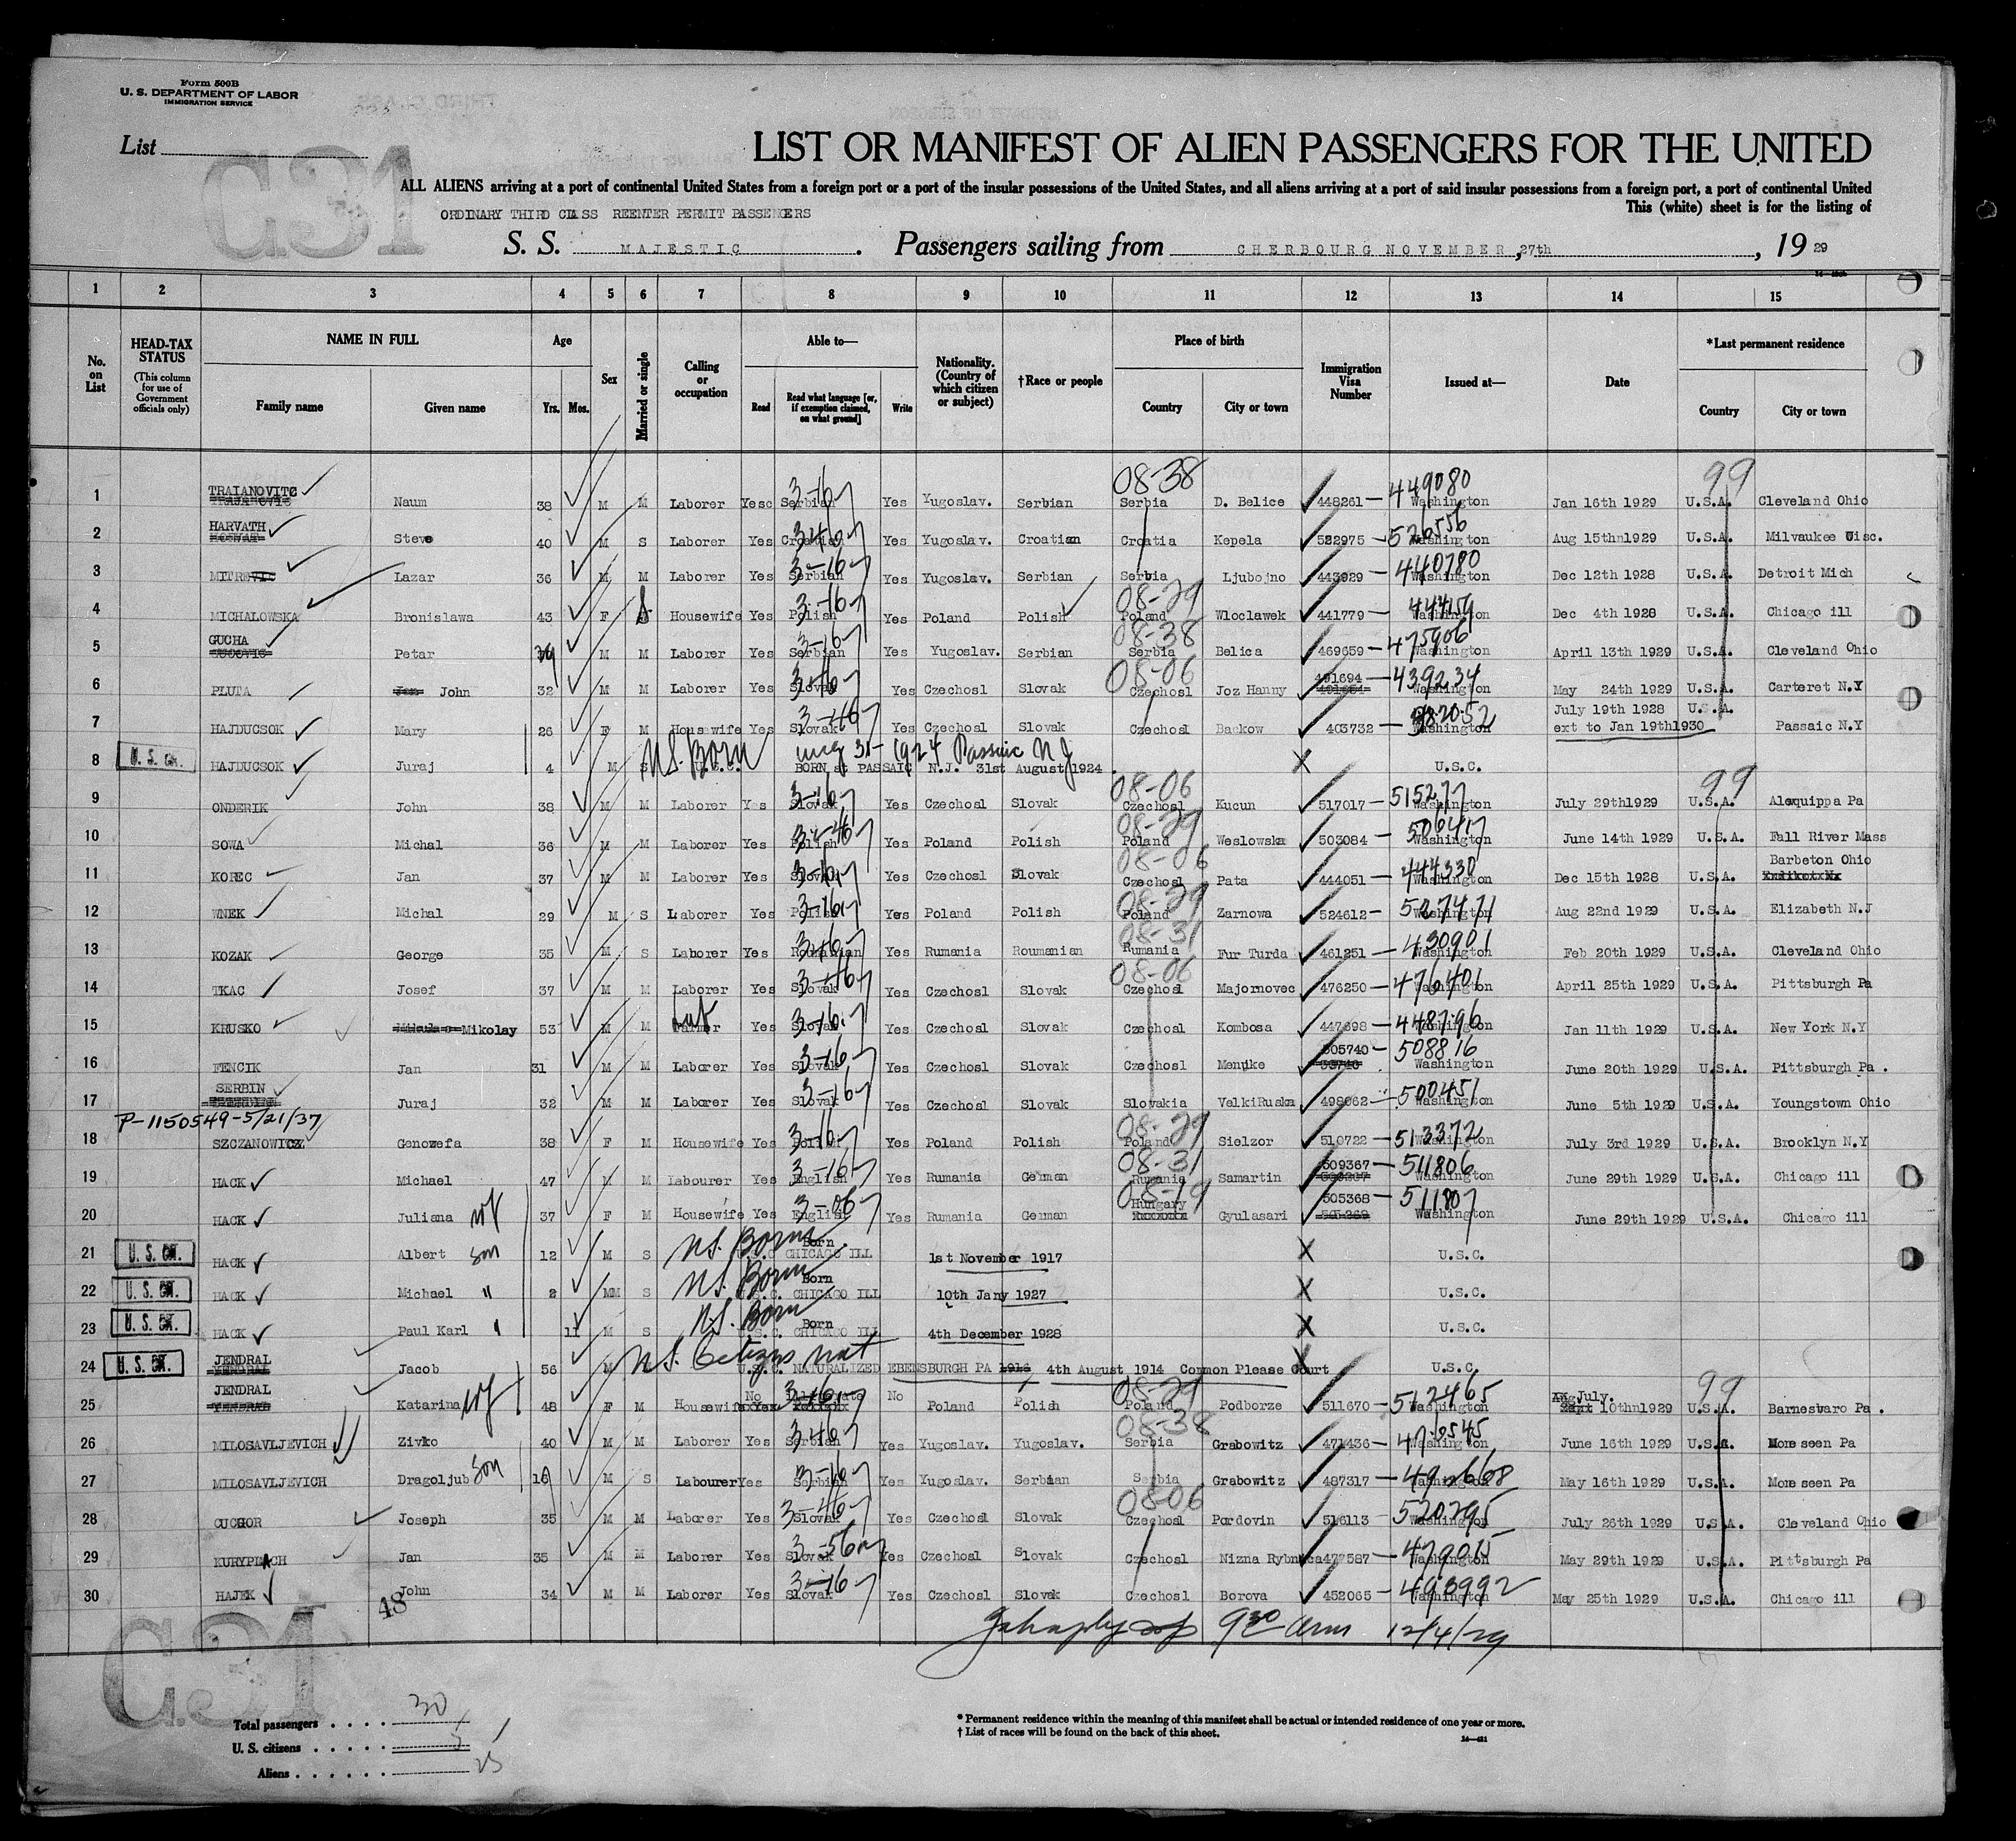 Form 500B
U. S. DEPARTMENT OF LABOR
IMMIGRATION SERVICE
List
LIST OR MANIFEST OF ALIEN PASSENGERS FOR THE UNITED
ALL ALIENS arriving at a port of continental United States from a foreign port or a port of the insular possessions of the United States, and all aliens arriving at a port of said insular possessions from a foreign port, a port of continental United
This (white) sheet is for the listing of
ORDINARY THIRD CLASS REENTER PERMIT PASSENGERS
S. S. MAJESTIC . Passengers sailing from CHERBOURG NOVEMBER, 27th , 19 29
1 2 3 4 5 6 7 8 9 10 11 12 13 14 15
No. on List
HEAD-TAX STATUS
(This column for use of Government officials only)
NAME IN FULL
Family name Given name
Age
Yrs. Mos.
Sex
Married or single
Calling or occupation
Able to—
Read Read what language [or, if exemption claimed, on what ground] Write
Nationality. (Country of which citizen or subject)
†Race or people
Place of birth
Country City or town
Immigration Visa Number
Issued at—
Date
*Last permanent residence
Country City or town
1 TRAIANOVITC Naum 38 M M Laborer Yesc Serbian Yes Yugoslav. Serbian 08-38 Serbia D. Belice 448261 — 449080 Washington Jan 16th 1929 99 U.S.A. Cleveland Ohio
2 HARVATH Steve 40 M S Laborer Yes Croatian Yes Yugoslav. Croatian Croatia Kepela 522975 — 526556 Washington Aug 15thn1929 U.S.A. Milvaukee Wisc.
3 MITREVIC Lazar 36 M M Laborer Yes Serbian 3-16 Yes Yugoslav. Serbian Serbia Ljubojno 443929 — 440780 Washington Dec 12th 1928 U.S.A. Detroit Mich
4 MICHALOWSKA Bronislawa 43 F Housewife Yes Polish 3-16 Yes Poland Polish 08-29 Poland Wloclawek 441779 — Washington Dec 4th 1928 U.S.A. Chicago ill
5 GUCHA Petar M M Laborer Yes Serbian 3-16 Yes Yugoslav. Serbian 08-38 Serbia Belica 469659 — 475906 Washington April 13th 1929 U.S.A. Cleveland Ohio
6 PLUTA Jan John 32 M M Laborer Yes Slovak Yes Czechosl Slovak 08-06 Czechosl Joz Hanny 491694 — 439234 Washington May 24th 1929 U.S.A. Carteret N.Y
7 HAJDUCSOK Mary 26 F M Housewife Yes Slovak Yes Czechosl Slovak Czechosl Backow 405732 — Washington July 19th 1928 ext to Jan 19th1930 U.S.A. Passaic N.Y
8 HAJDUCSOK Juraj 4 M S U.S. Born U.S.C. Aug 31- 1924 Passaic N J BORN at PASSAIC N.J. 31st August 1924 . X U.S.C.
9 ONDERIK John 38 M M Laborer Yes Slovak Yes Czechosl Slovak 08-06 Czechosl Kucun 517017 — 515277 Washington July 29th1929 99 U.S.A. Alequippa Pa
10 SOWA Michal 36 M M Laborer Yes Polish Yes Poland Polish 08-29 Poland Weslowska 503084 — 506417 Washington June 14th 1929 U.S.A. Fall River Mass
11 KOREC Jan 37 M M Laborer Yes Slovak Yes Czechosl Slovak 08-06 Czechosl Pata 444051 — 444330 Washington Dec 15th 1928 U.S.A. Barbeton Ohio
12 WNEK Michal 29 M S Laborer Yes Polish Yes Poland Polish 08-29 Poland Zarnowa 524612 — 527471 Washington Aug 22nd 1929 U.S.A. Elizabeth N.J
13 KOZAK George 35 M S Laborer Yes Roumanian Yes Rumania Roumanian 08-31 Rumania Fur Turda 461251 — 430901 Washington Feb 20th 1929 U.S.A. Cleveland Ohio
14 TKAC Josef 37 M M Laborer Yes Slovak Yes Czechosl Slovak 08-06 Czechosl Majornovec 476250 — 476401 Washington April 25th 1929 U.S.A. Pittsburgh Pa
15 KRUSKO Mikolay 53 M M Farmer Yes Slovak Yes Czechosl Slovak Czechosl Kombosa 447698 — 448796 Washington Jan 11th 1929 U.S.A. New York N.Y
16 FENCIK Jan 31 M M Laborer Yes Slovak 3-16 Yes Czechosl Slovak Czechosl Menuke 505740 — 508816 Washington June 20th 1929 U.S.A. Pittsburgh Pa .
17 SERBIN Juraj 32 M M Laborer Yes Slovak 3-16 Yes Czechosl Slovak Slovakia VelkiRuska 498662 — 500451 Washington June 5th 1929 U.S.A. Youngstown Ohio
P-1150549-5/21/37
18 SZCZANOWICZ Genowefa 38 F M Housewife Yes Polish 3-16 Yes Poland Polish 08-29 Poland Sielzor 510722 — 513372 Washington July 3rd 1929 U.S.A. Brooklyn N.Y
19 HACK Michael 47 M M Labourer Yes English 3-16 Yes Rumania German 08-31 Rumania Samartin 509367 — 511806 Washington June 29th 1929 U.S.A. Chicago ill
20 HACK Juliana wf 37 F M Housewife Yes English Yes Rumania German 08-19 Hungary Gyulasari 505368 — 511807 Washington June 29th 1929 U.S.A. Chicago ill
21 U. S. CIT. HACK Albert son 12 M S U.S. Born Born U.S.C CHICAGO ILL 1st November 1917 X U.S.C.
22 U. S. CIT. HACK Michael " 2 MM S U.S. Born Born U.S.C. CHICAGO ILL 10th Jany 1927 X U.S.C.
23 U. S. CIT. HACK Paul Karl " 11 M S U.S. Born Born U.S.C. CHICAGO ILL 4th December 1928 X U.S.C.
24 U. S. CIT. JENDRAL Jacob 56 M U.S. Citizen nat U.S.C. NATURALIZED EBENSBURGH PA 4th August 1914 Common Please Court X U.S.C.
25 JENDRAL Katarina wf 48 F M Housewife No No Poland Polish 08-29 Poland Podborze 511670 — 512465 Washington July. 10thn1929 99 U.S.A. Barnesbaro Pa .
26 MILOSAVLJEVICH Zivko 40 M M Laborer Yes Serbian Yes Yugoslav. Yugoslav. 08-38 Serbia Grabowitz 471436 — Washington June 16th 1929 U.S.A. More seen Pa
27 MILOSAVLJEVICH Dragoljub son 16 M S Labourer Yes Serbian Yes Yugoslav. Serbian Serbia Grabowitz 487317 — Washington May 16th 1929 U.S.A. More seen Pa
28 CUCHOR Joseph 35 M M Laborer Yes Slovak Yes Czechosl Slovak 08-06 Czechosl Pordovin 516113 — 520795 Washington July 26th 1929 U.S.A. Cleveland Ohio
29 KURYPLACH Jan 35 M M Laborer Yes Slovak Yes Czechosl Slovak Czechosl Nizna Rybnica 477587 — Washington May 29th 1929 U.S.A. Pittsburgh Pa
30 HAJEK John 34 M M Laborer Yes Slovak 3-16 Yes Czechosl Slovak Czechosl Borova 452065 — 493992 Washington May 25th 1929 U.S.A. Chicago ill
48
9 30 am 12/4/29
Total passengers . . . . 30
U. S. citizens . . . . . 5
Aliens . . . . . . 25
* Permanent residence within the meaning of this manifest shall be actual or intended residence of one year or more.
† List of races will be found on the back of this sheet.